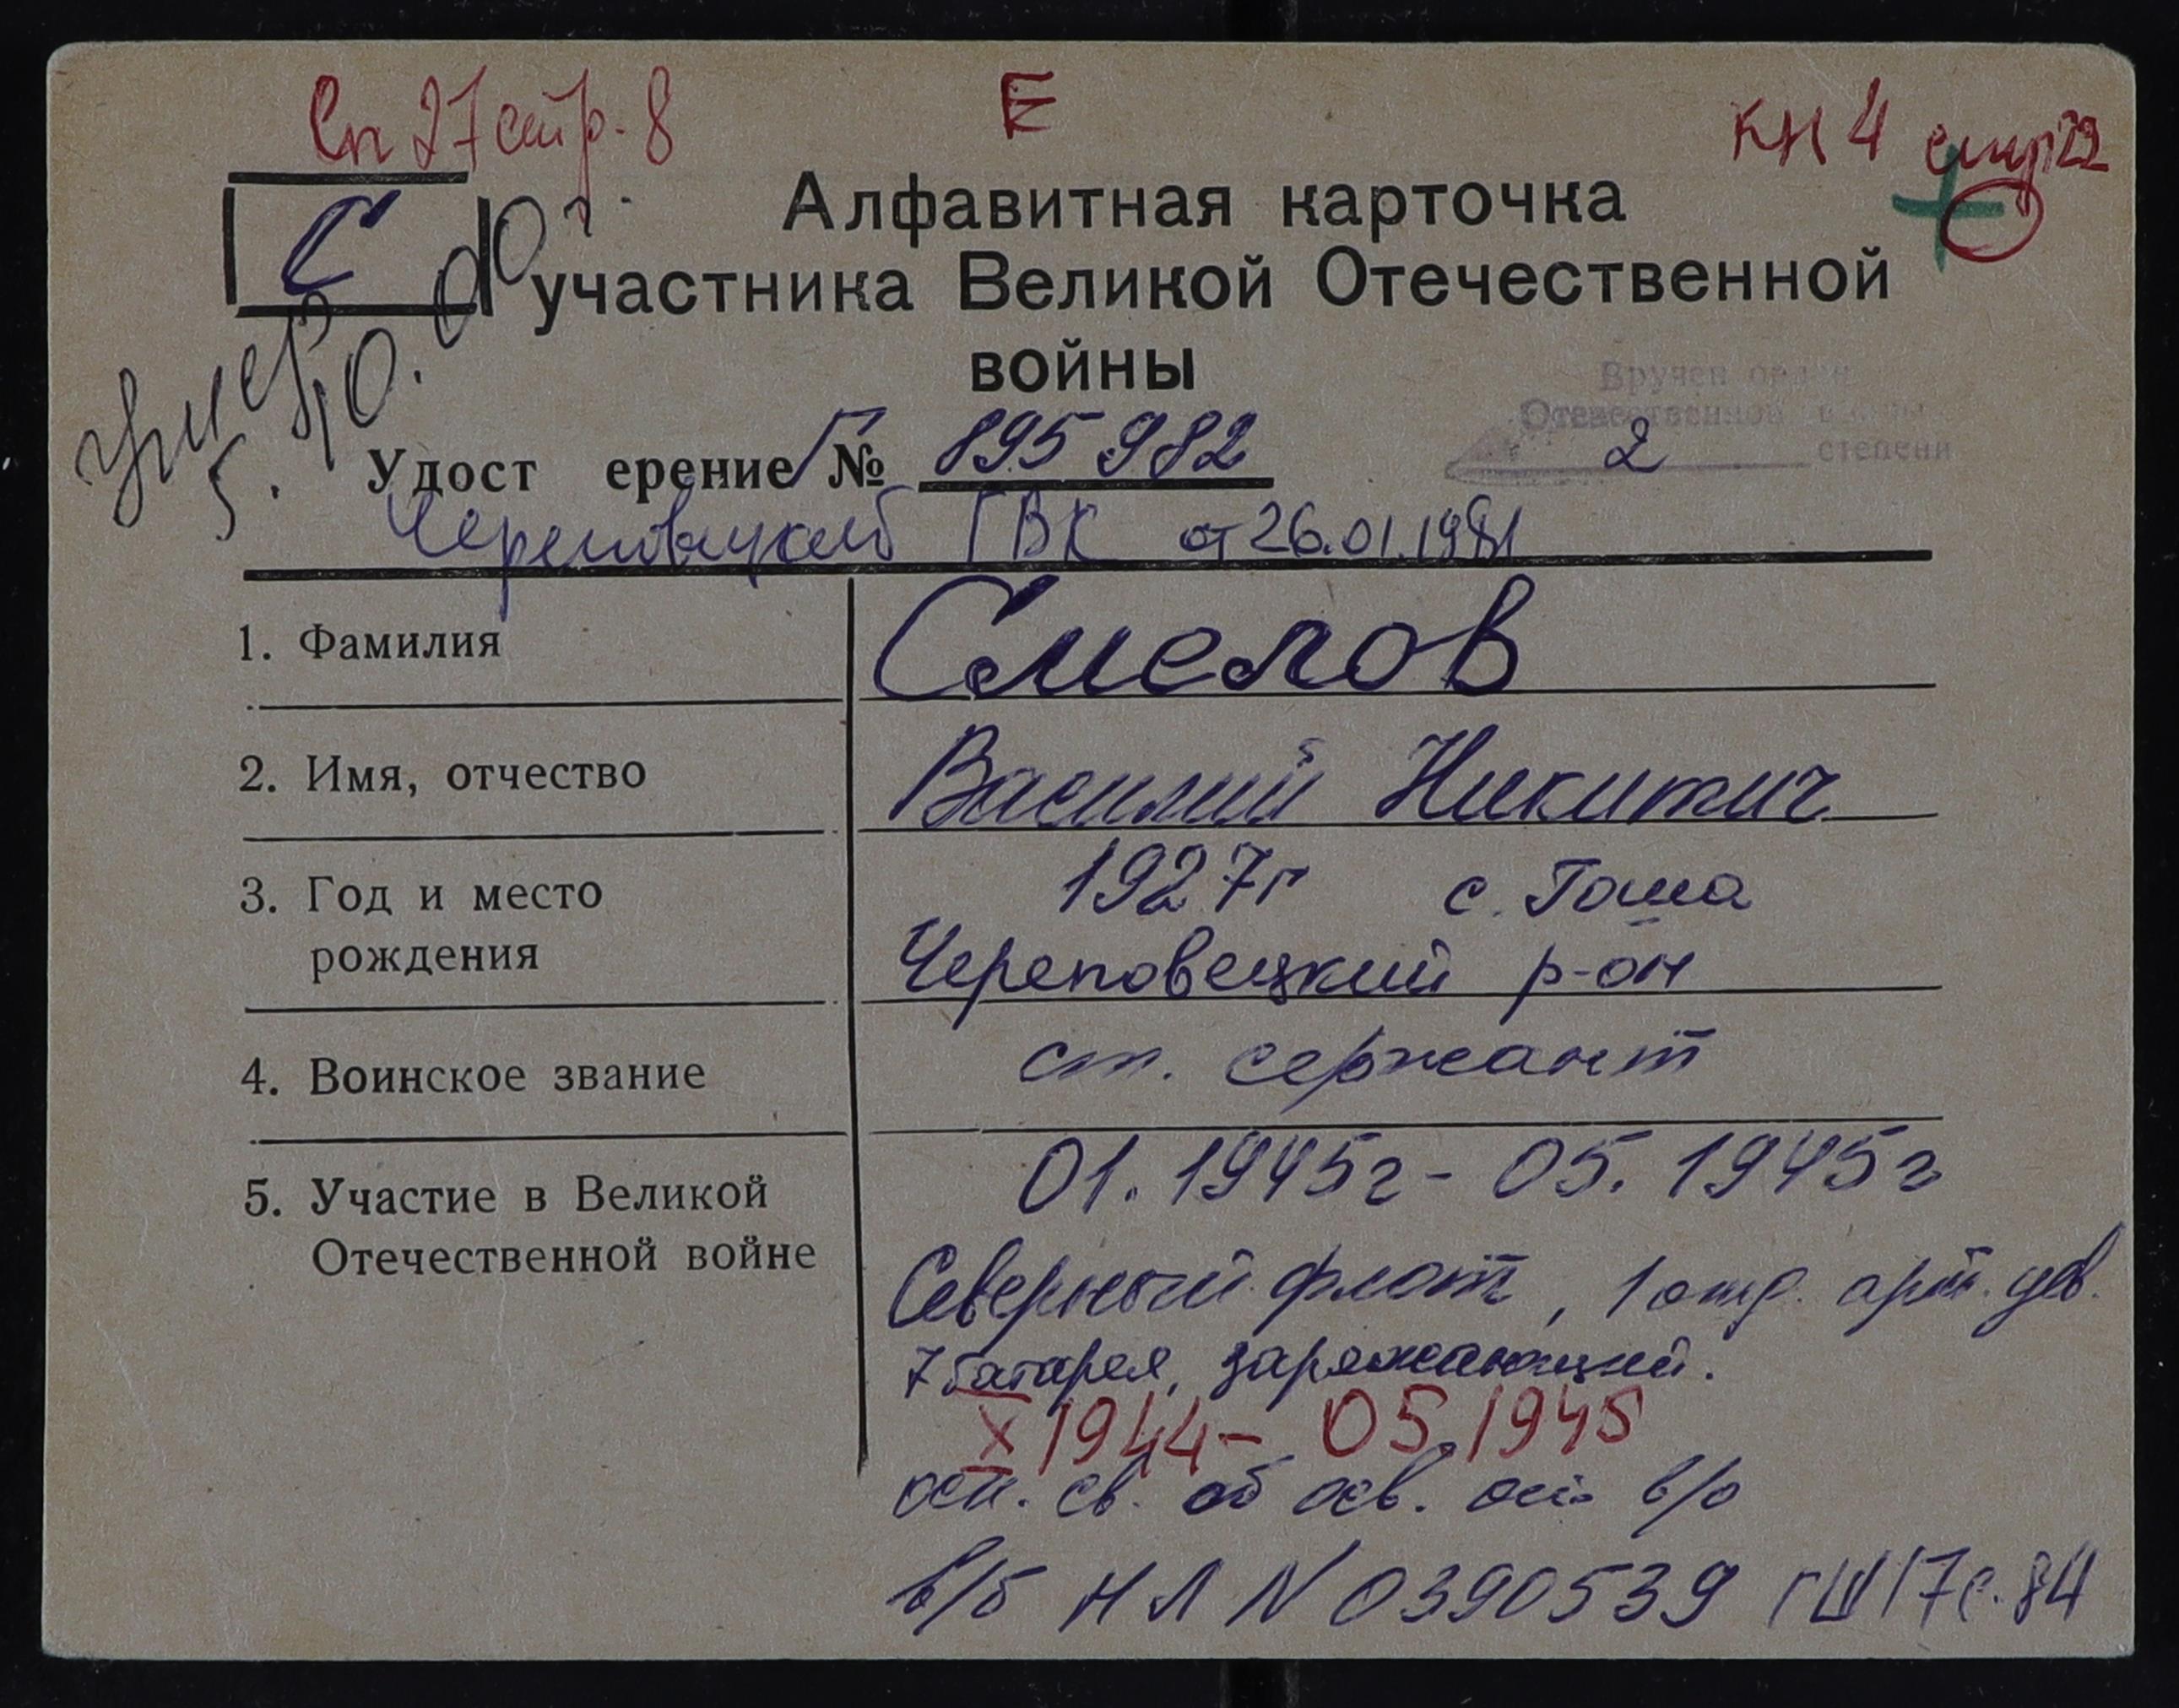 Сп 27 стр. 8
Е
КН 4 стр 22
С
Алфавитная карточка
участника Великой Отечественной
войны
умер
5.10.00 г.
Вручен орден
Отечественной войны
2 степени
Удост ерение Г № 895 982
Череповецкий ГВК от 26.01.1981
1. Фамилия
Смелов
2. Имя, отчество
Василий Никитич
3. Год и место
рождения
1927г с. Гоша
Череповецкий р-он
4. Воинское звание
ст. сержант
5. Участие в Великой
Отечественной войне
01.1945г - 05.1945г
Северный флот, 1 отд. арт. див.
7 батарея, заряжающий.
X 1944 - 05.1945
осн. св. об осв. от в/о
в/б НЛ N 0390539 ГШ 17 с. 84